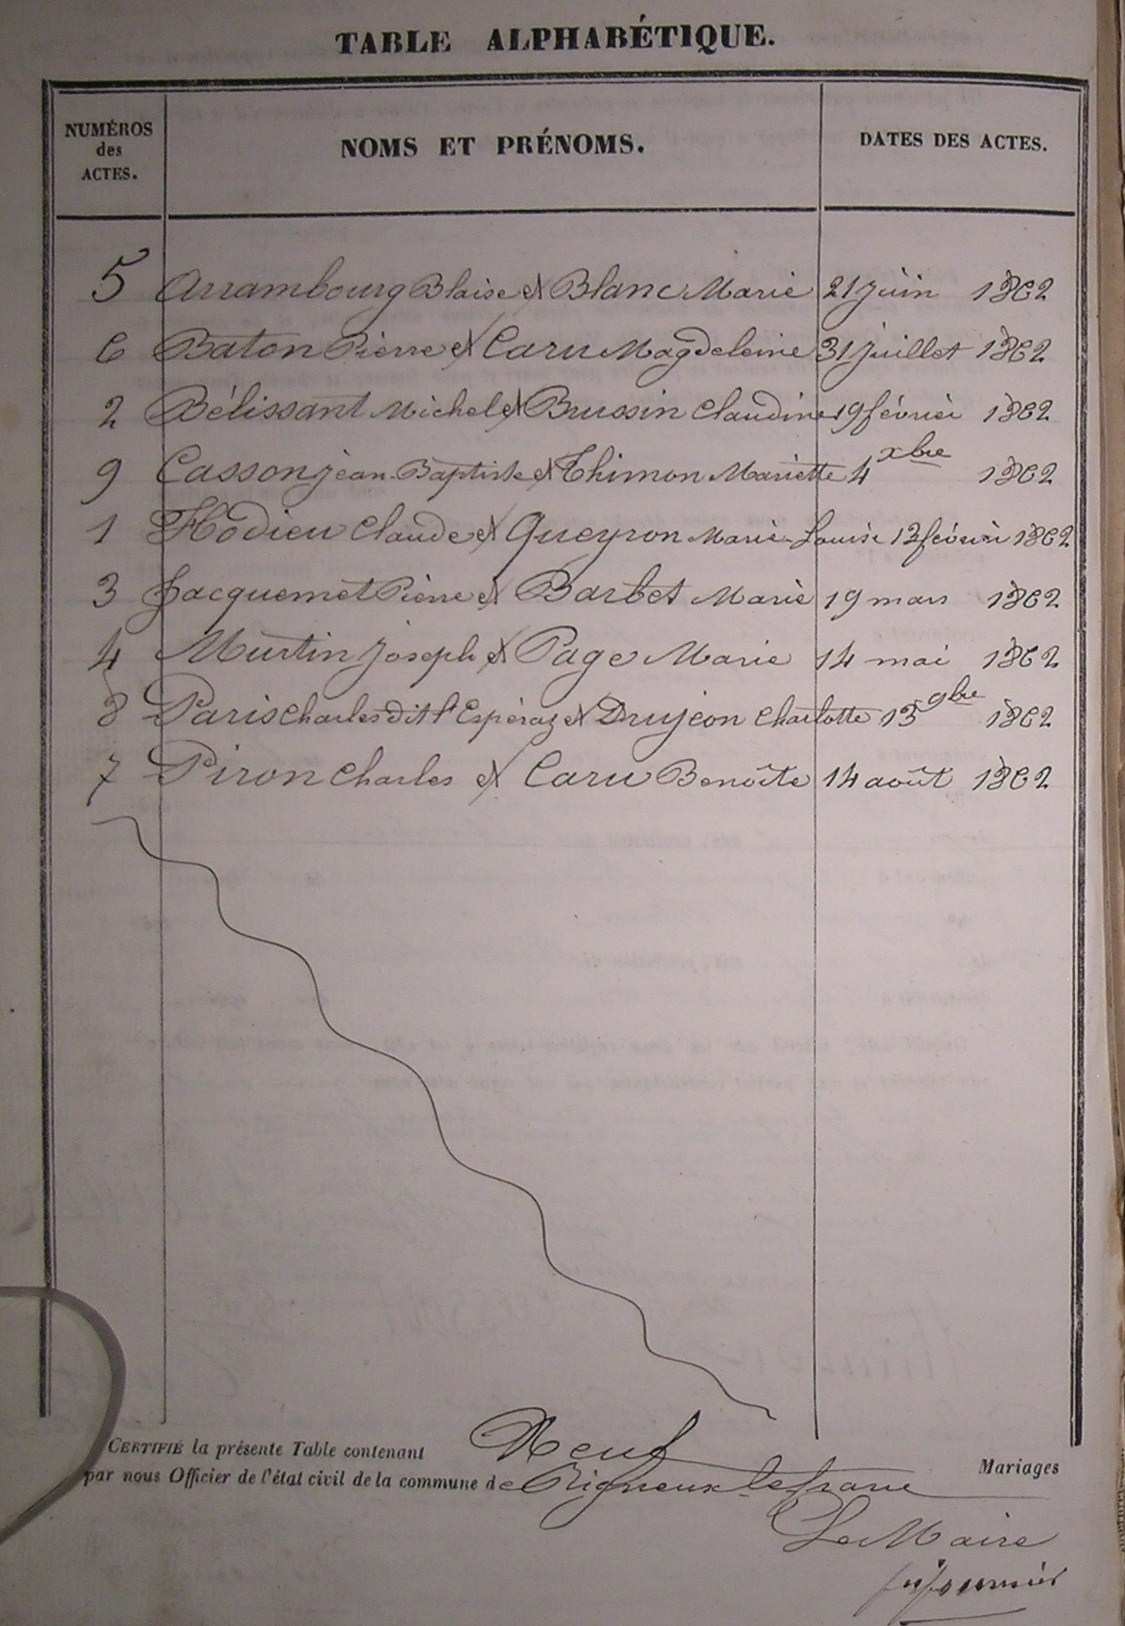 TABLE ALPHABÉTIQUE.
NUMÉROS des ACTES.
NOMS ET PRÉNOMS.
DATES DES ACTES.
5 Arrambourg Blaise et Blanc Marie 21 juin 1862
6 Baton Pierre et Caru Magdeleine 31 juillet 1862
2 Bélissant Michel et Brussin Claudine 19 février 1862
9 Casson jean-Baptiste et Thimon Mariette 4 xbre 1862
1 Hodieu Claude et Queyron Marie-Louise 12 février 1862
3 Jacquemet Pierre et Barbet Marie 19 mars 1862
4 Murtin Joseph et Page Marie 14 mai 1862
8 Paris Charles dit l'Espéraz et Drujeon Charlotte 15 9bre 1862
7 Piron Charles et Caru Benoîte 14 août 1862
CERTIFIÉ la présente Table contenant Neuf Mariages
par nous Officier de l'état civil de la commune de Rigneux-le-franc
Le Maire